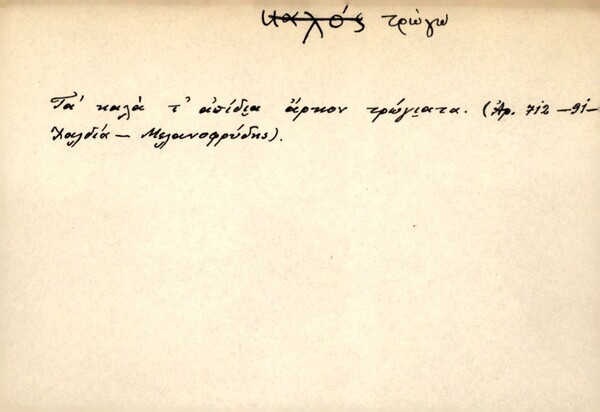 καλός τρώγω
Τα' καλά τ' απίδια̤ άρκον τρώγια̤τα. (Αρ. 712 – 91 –
Χαλδία – Μελανοφρύδης).